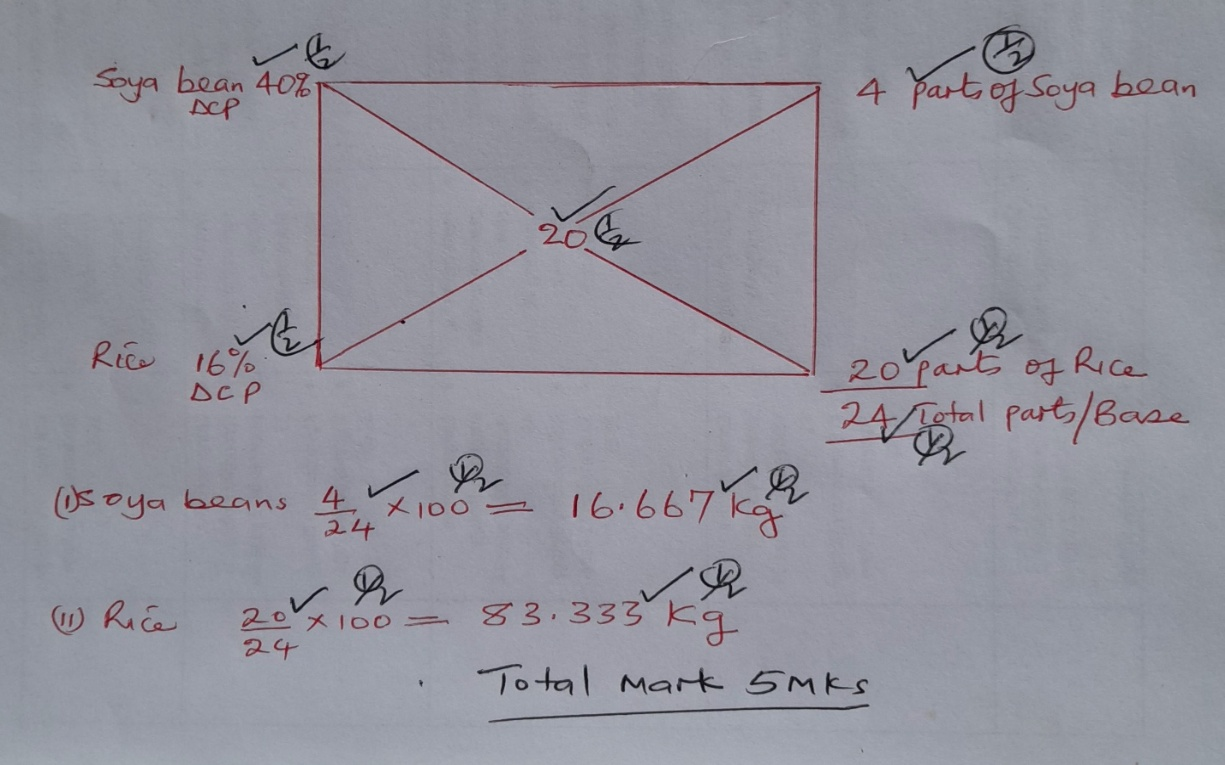 ½
½
Soya bean 40%
DCP
4 parts of Soya bean
20 ½
½
½
Rice 16%
DCP
20 parts of Rice
24 Total parts/Base
½
½ ½
(i) Soya beans 4/24 × 100 = 16.667 kg
½ ½
(ii) Rice 20/24 × 100 = 83.333 Kg
Total Mark 5MKs